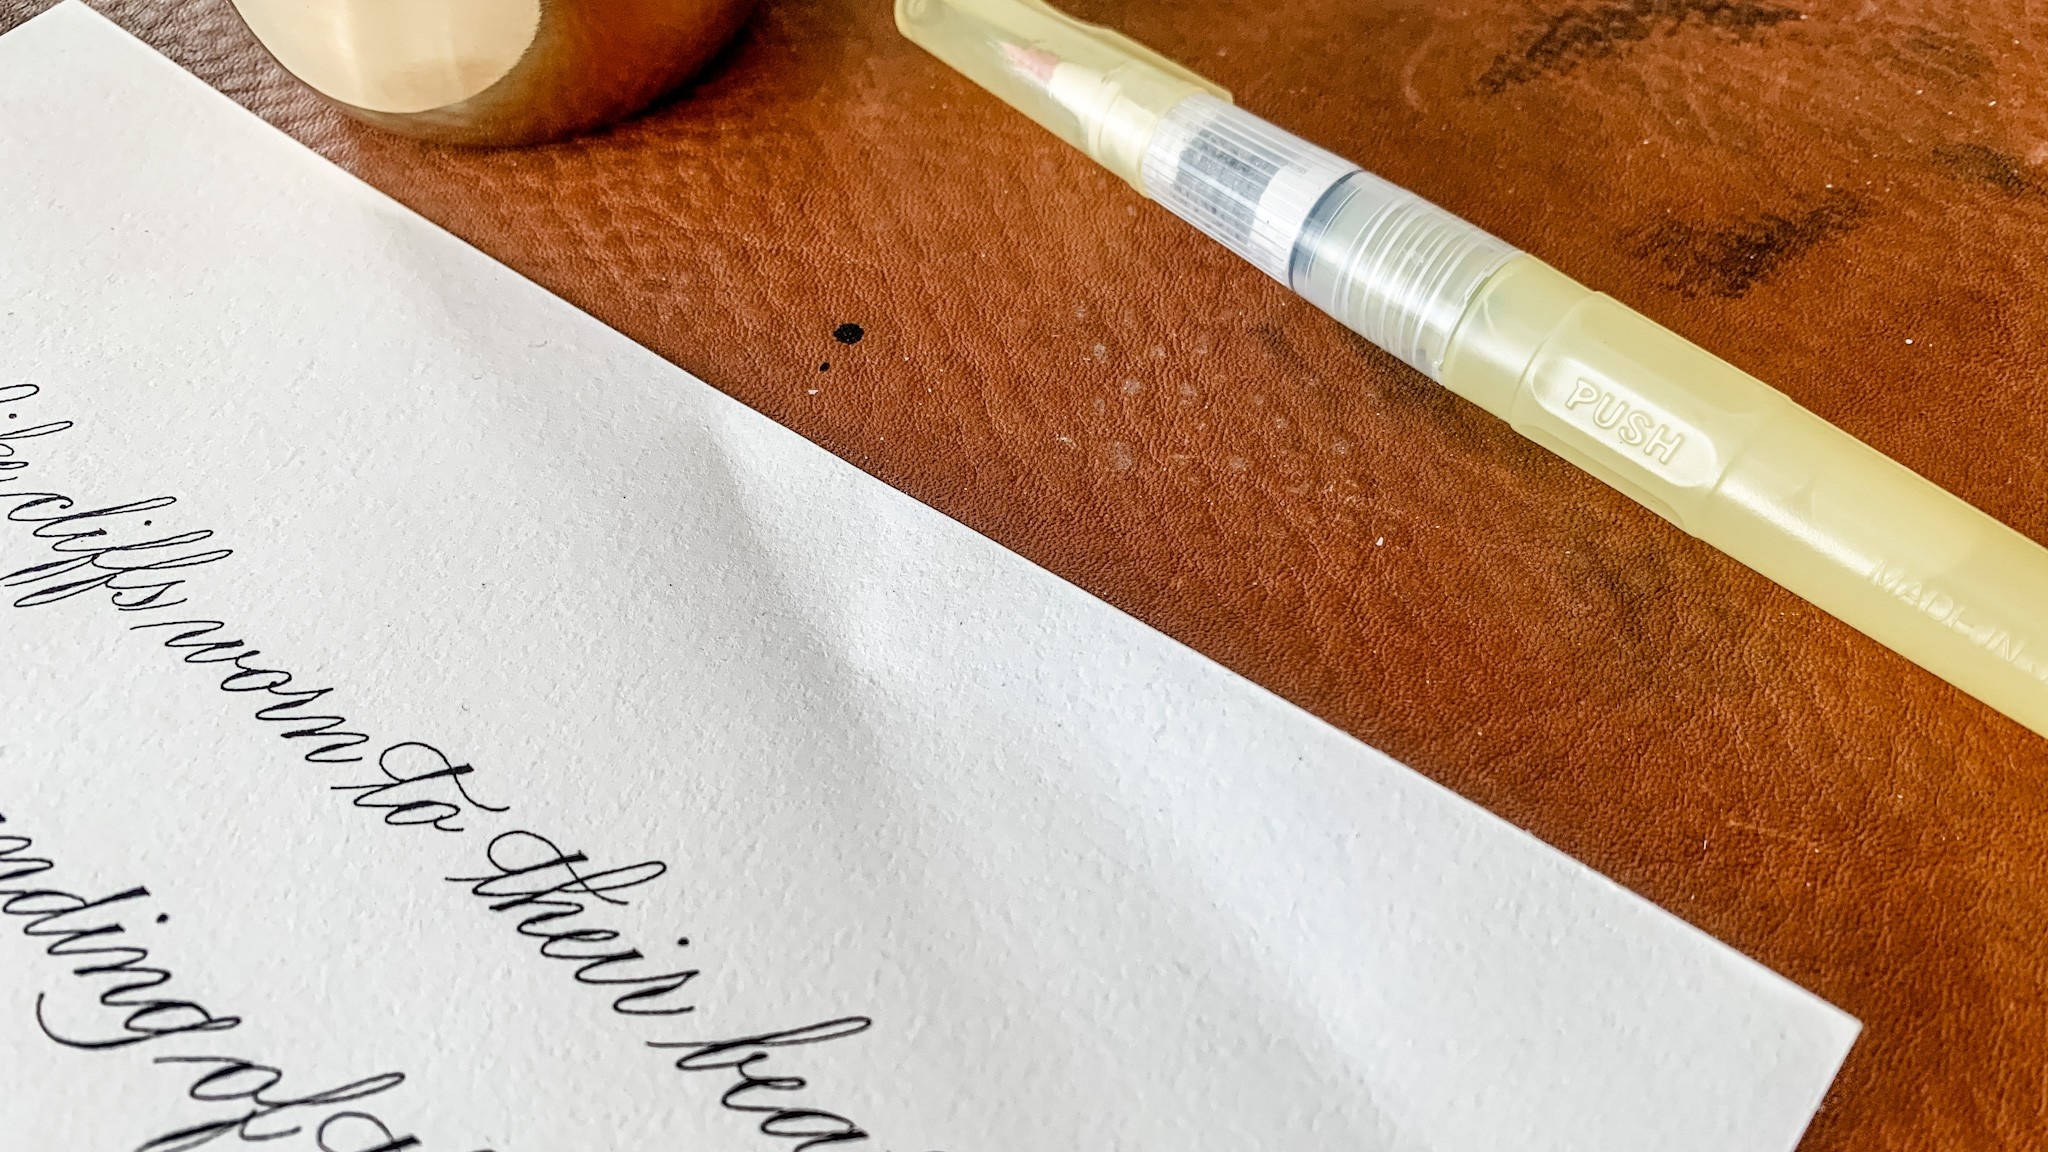 like cliffs worn to their bea
nding of t
PUSH
MADE IN